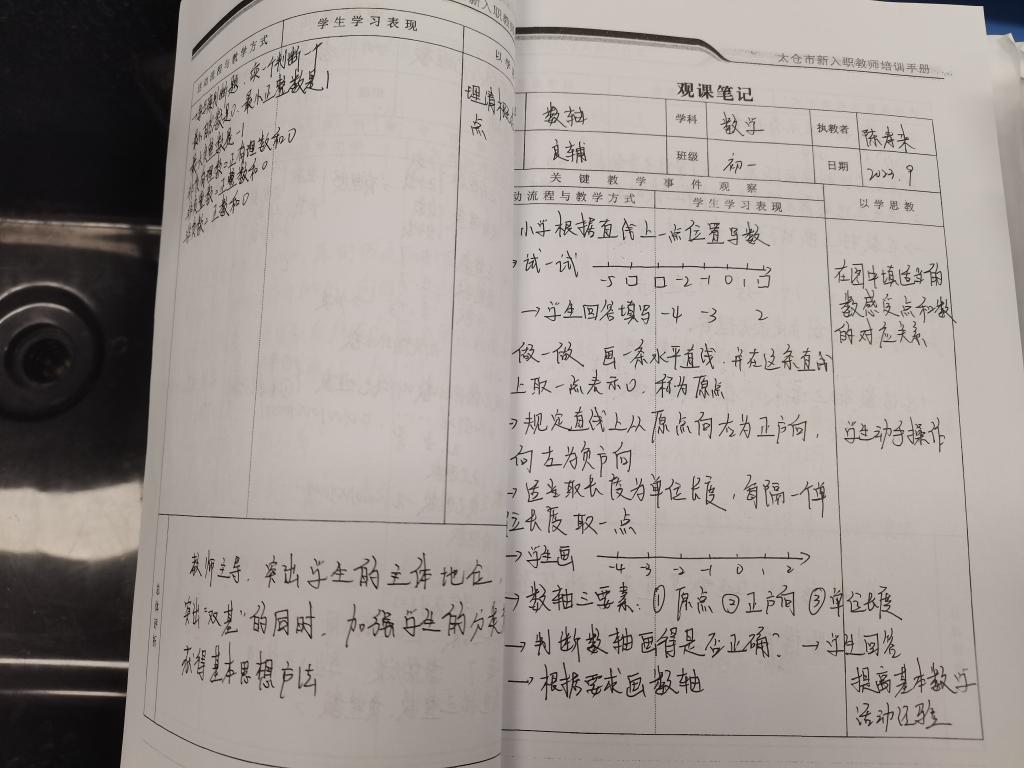 新入职教
动流程与教学方式 学生学习表现 以学
最小的数是0. 最小正整数是1
最大负整数是-1
理清概念
点
总体评析
教师主导,突出学生的主体地位,
突出"双基"的同时,加强学生的分类
获得基本思想方法
太仓市新入职教师培训手册
观课笔记
数轴 学科 数学 执教者
良辅 班级 初一 日期 2023.9
关键教学事件观察
动流程与教学方式 学生学习表现 以学思教
小学根据直线上一点位置写数
→试一试 -5 □ □ -2 -1 0 1 □
→学生回答填写 -4 -3 2
在图中填适当的
数感受点和数
的对应关系
做一做 画一条水平直线,并在这条直线
上取一点表示0,称为原点
→规定直线上从原点向右为正方向,
向左为负方向
学生动手操作
→适当取长度为单位长度,每隔一个单
位长度取一点
→学生画 -4 -3 -2 -1 0 1 2
→数轴三要素:①原点 ②正方向 ③单位长度
→判断数轴画得是否正确? →学生回答
→根据要求画数轴
提高基本数学
活动经验